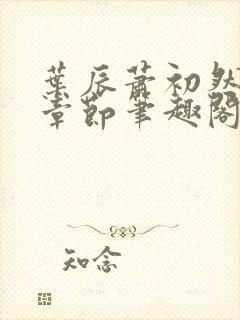 葉辰蕭初然
章節筆趣閣
知念